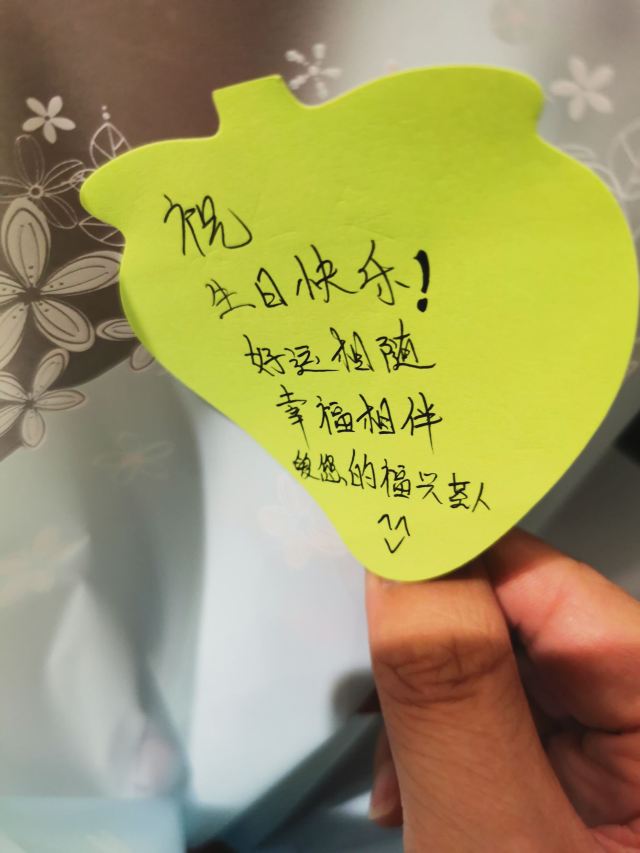 祝
生日快乐!
好运相随
幸福相伴
爱您的福兴芸人